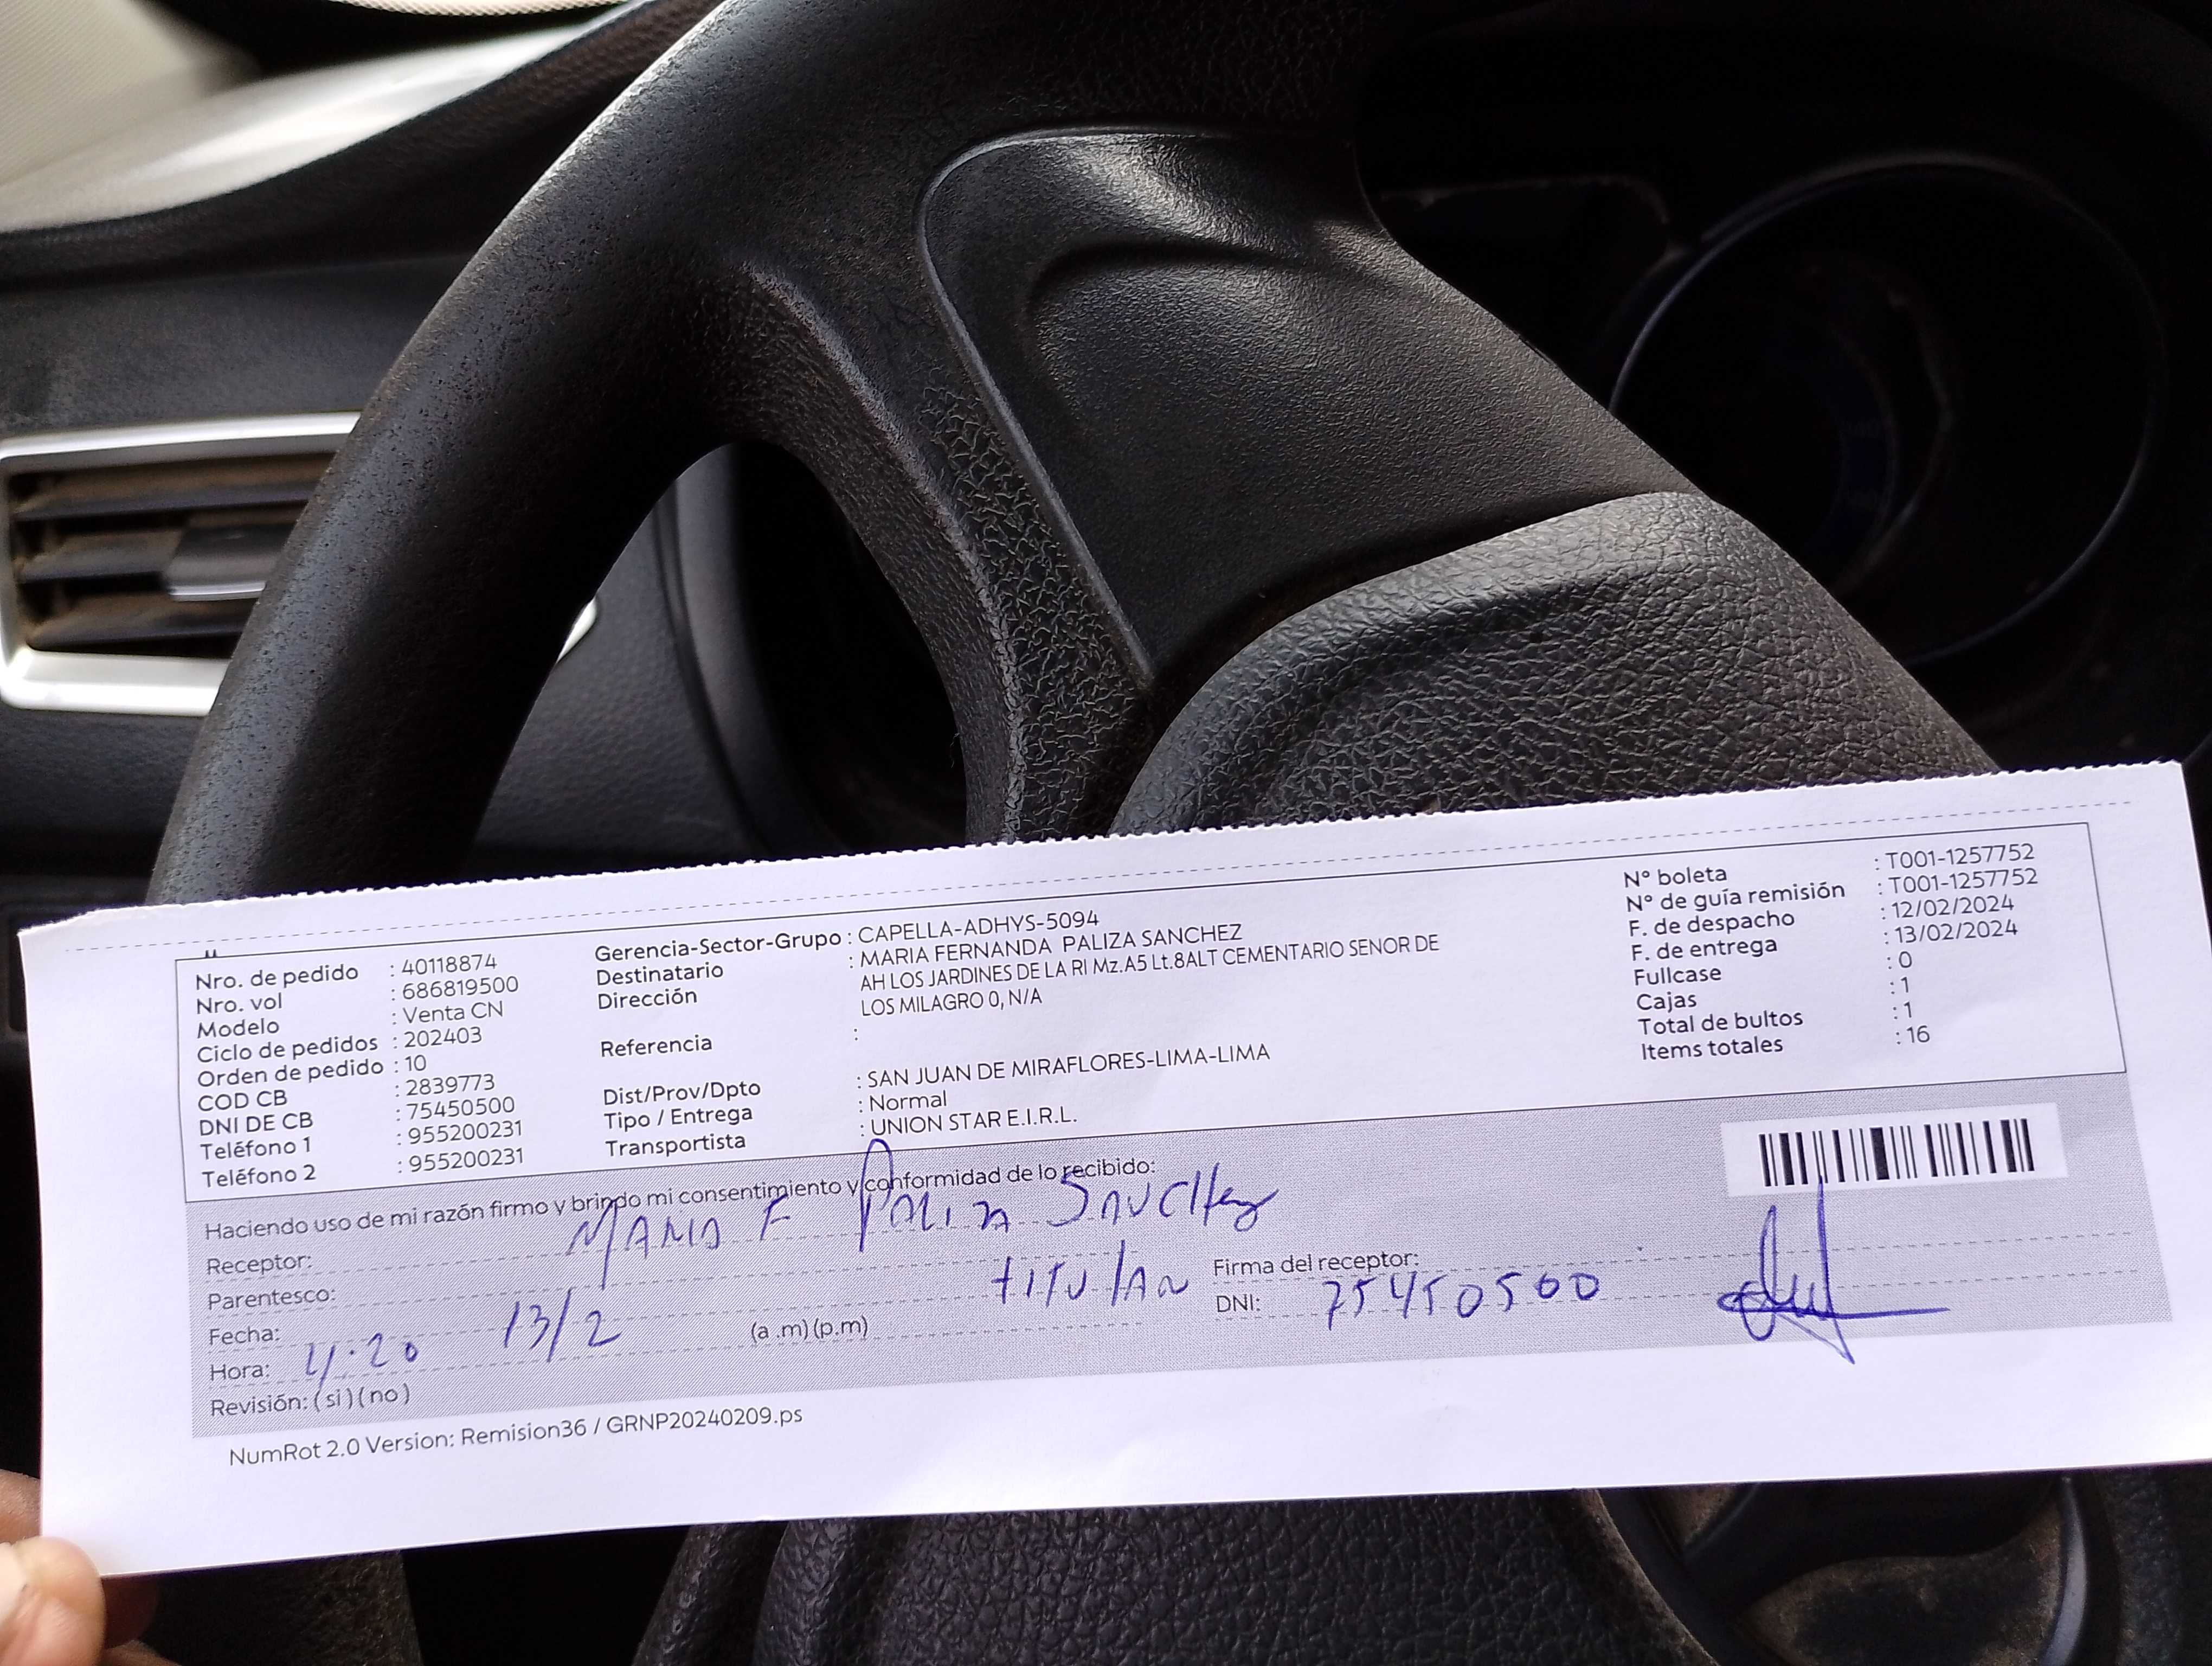 Nro. de pedido : 40118874
Nro. vol : 686819500
Modelo : Venta CN
Ciclo de pedidos : 202403
Orden de pedido : 10
COD CB : 2839773
DNI DE CB : 75450500
Teléfono 1 : 955200231
Teléfono 2 : 955200231
Gerencia-Sector-Grupo : CAPELLA-ADHYS-5094
Destinatario : MARIA FERNANDA PALIZA SANCHEZ
Dirección AH LOS JARDINES DE LA RI Mz.A5 Lt.8ALT CEMENTARIO SENOR DE
LOS MILAGRO 0, N/A
Referencia :
Dist/Prov/Dpto : SAN JUAN DE MIRAFLORES-LIMA-LIMA
Tipo / Entrega : Normal
Transportista : UNION STAR E.I.R.L.
N° boleta : T001-1257752
N° de guía remisión : T001-1257752
F. de despacho : 12/02/2024
F. de entrega : 13/02/2024
Fullcase : 0
Cajas : 1
Total de bultos : 1
Items totales : 16
Haciendo uso de mi razón firmo y brindo mi consentimiento y conformidad de lo recibido:
Receptor: MARIA F PALIZA SANCHEZ
Parentesco: TITULAR
Fecha: 13/2
Hora: 4:20 (a .m) (p.m)
Revisión: ( si ) ( no )
Firma del receptor:
DNI: 75450500
NumRot 2.0 Version: Remision36 / GRNP20240209.ps